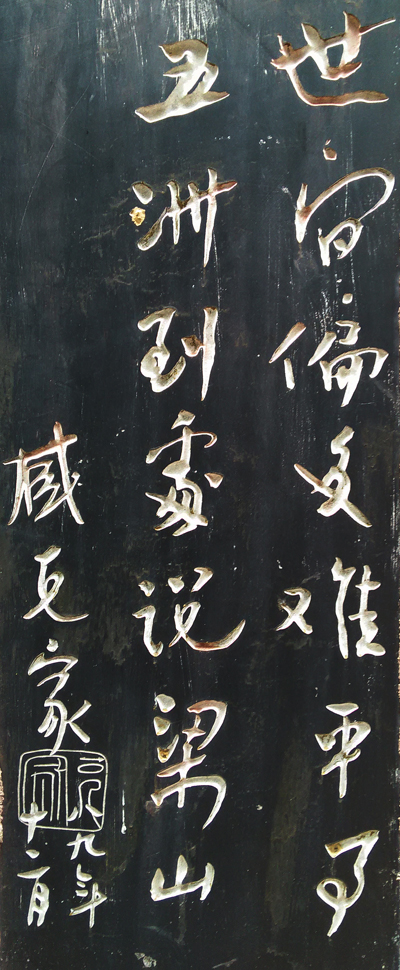 世间偏多难平事
五洲到處说梁山
臧克家
八九年
十二月